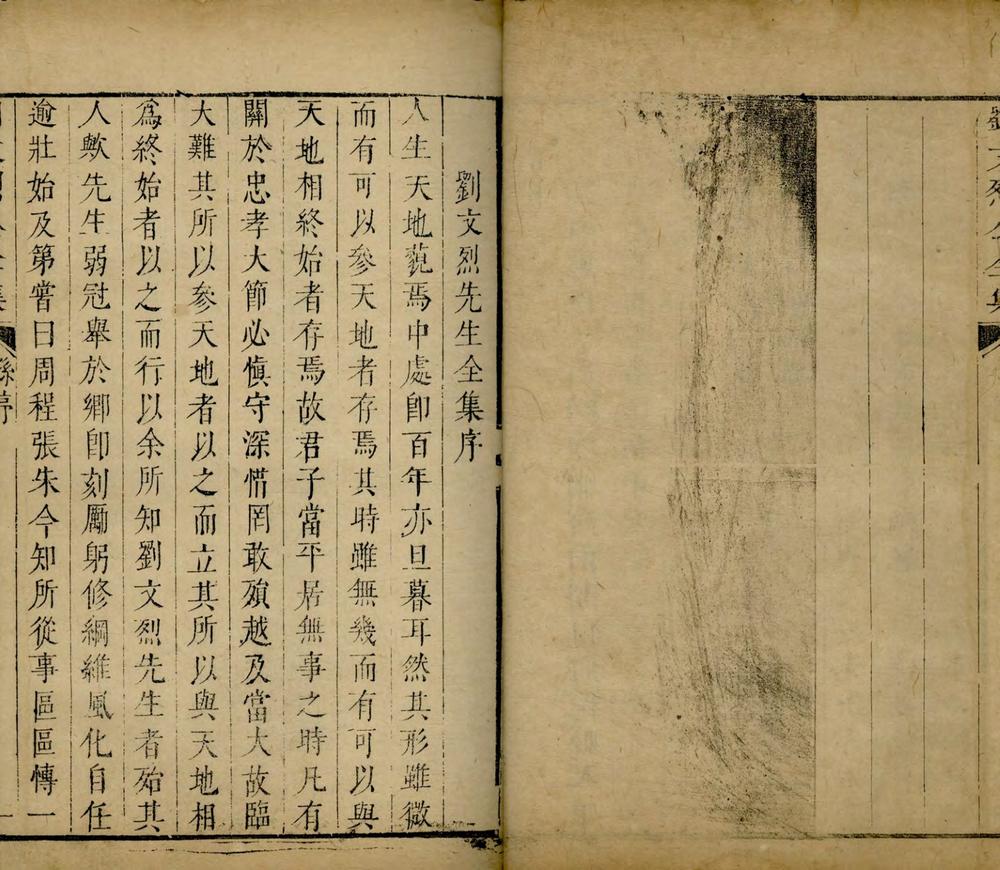 劉文烈公全集
劉文烈先生全集序
人生天地藐焉中處卽百年亦旦暮耳然其形雖微
而有可以參天地者存焉其時雖無幾而有可以與
天地相終始者存焉故君子當平居無事之時凡有
關於忠孝大節必愼守深惜罔敢殞越及當大故臨
大難其所以參天地者以之而立其所以與天地相
爲終始者以之而行以余所知劉文烈先生者殆其
人歟先生弱冠舉於鄉卽刻厲躬修綱維風化自任
逾壯始及第嘗曰周程張朱今知所從事區區傳一